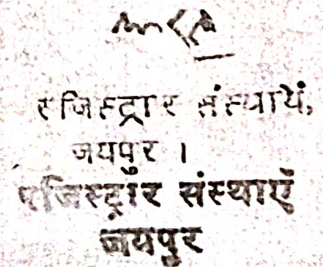 रजिस्ट्रार संस्थायें,
जयपुर ।
रजिस्ट्रार संस्थाएं
जयपुर